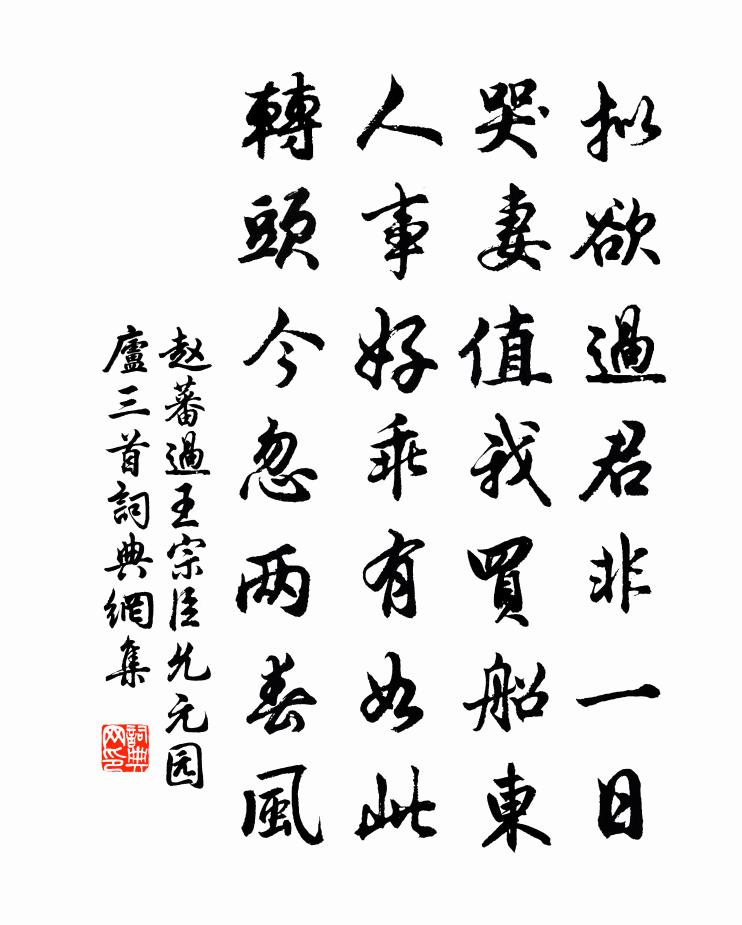 拟欲過君非一日
哭妻值我買船東
人事好乖有如此
轉頭今忽两春風
赵蕃過王宗臣允元园
廬三首詞典網集
詞典网印